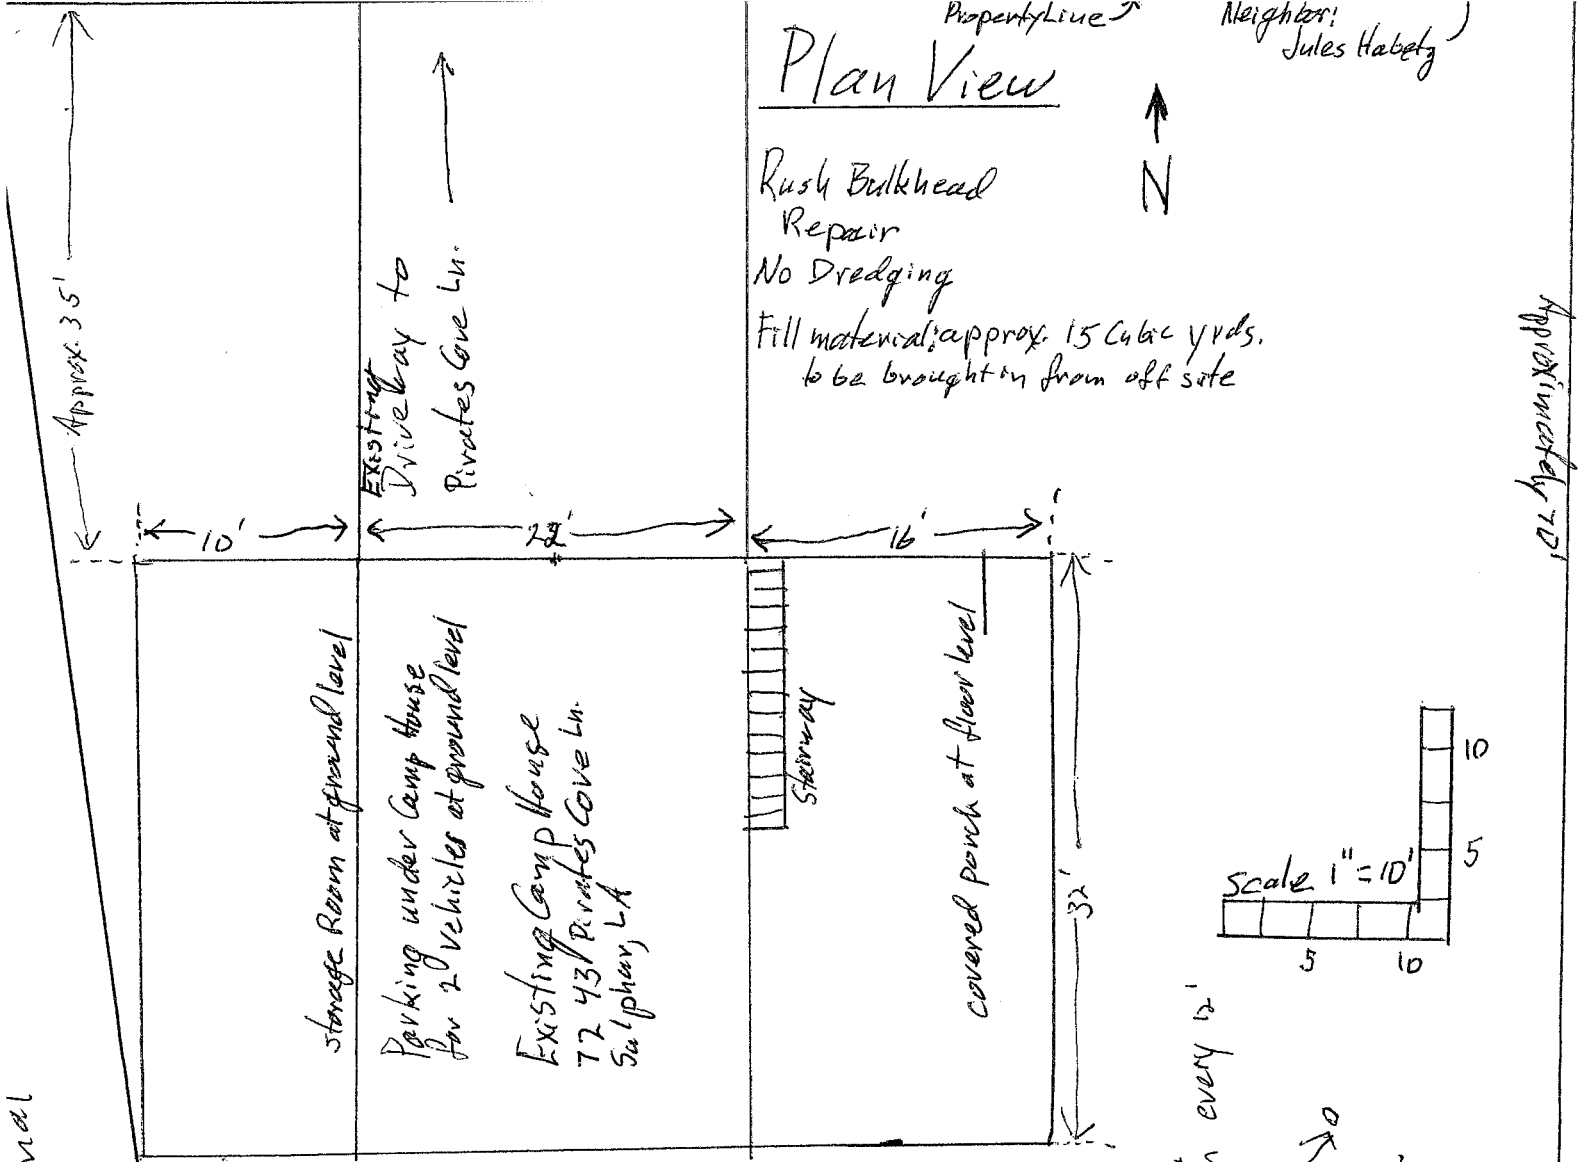 Property Line
Neighbor:
Jules Habetz
Plan View
N
Rush Bulkhead
Repair
No Dredging
Fill material: approx. 15 Cubic yrds.
to be brought in from off site
Approx. 35'
Existing
Driveway to
Pirates Cove Ln.
Approximately 70'
10'
22'
16'
storage Room at ground level
Parking under Camp House
for 2 vehicles at ground level
Existing Camp House
7243 Pirates Cove Ln.
Sulphur, LA
Stairway
covered porch at floor level
32'
Scale 1"=10'
10
5
5
10
every 12'